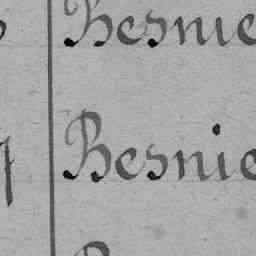 Besnie
Besnie